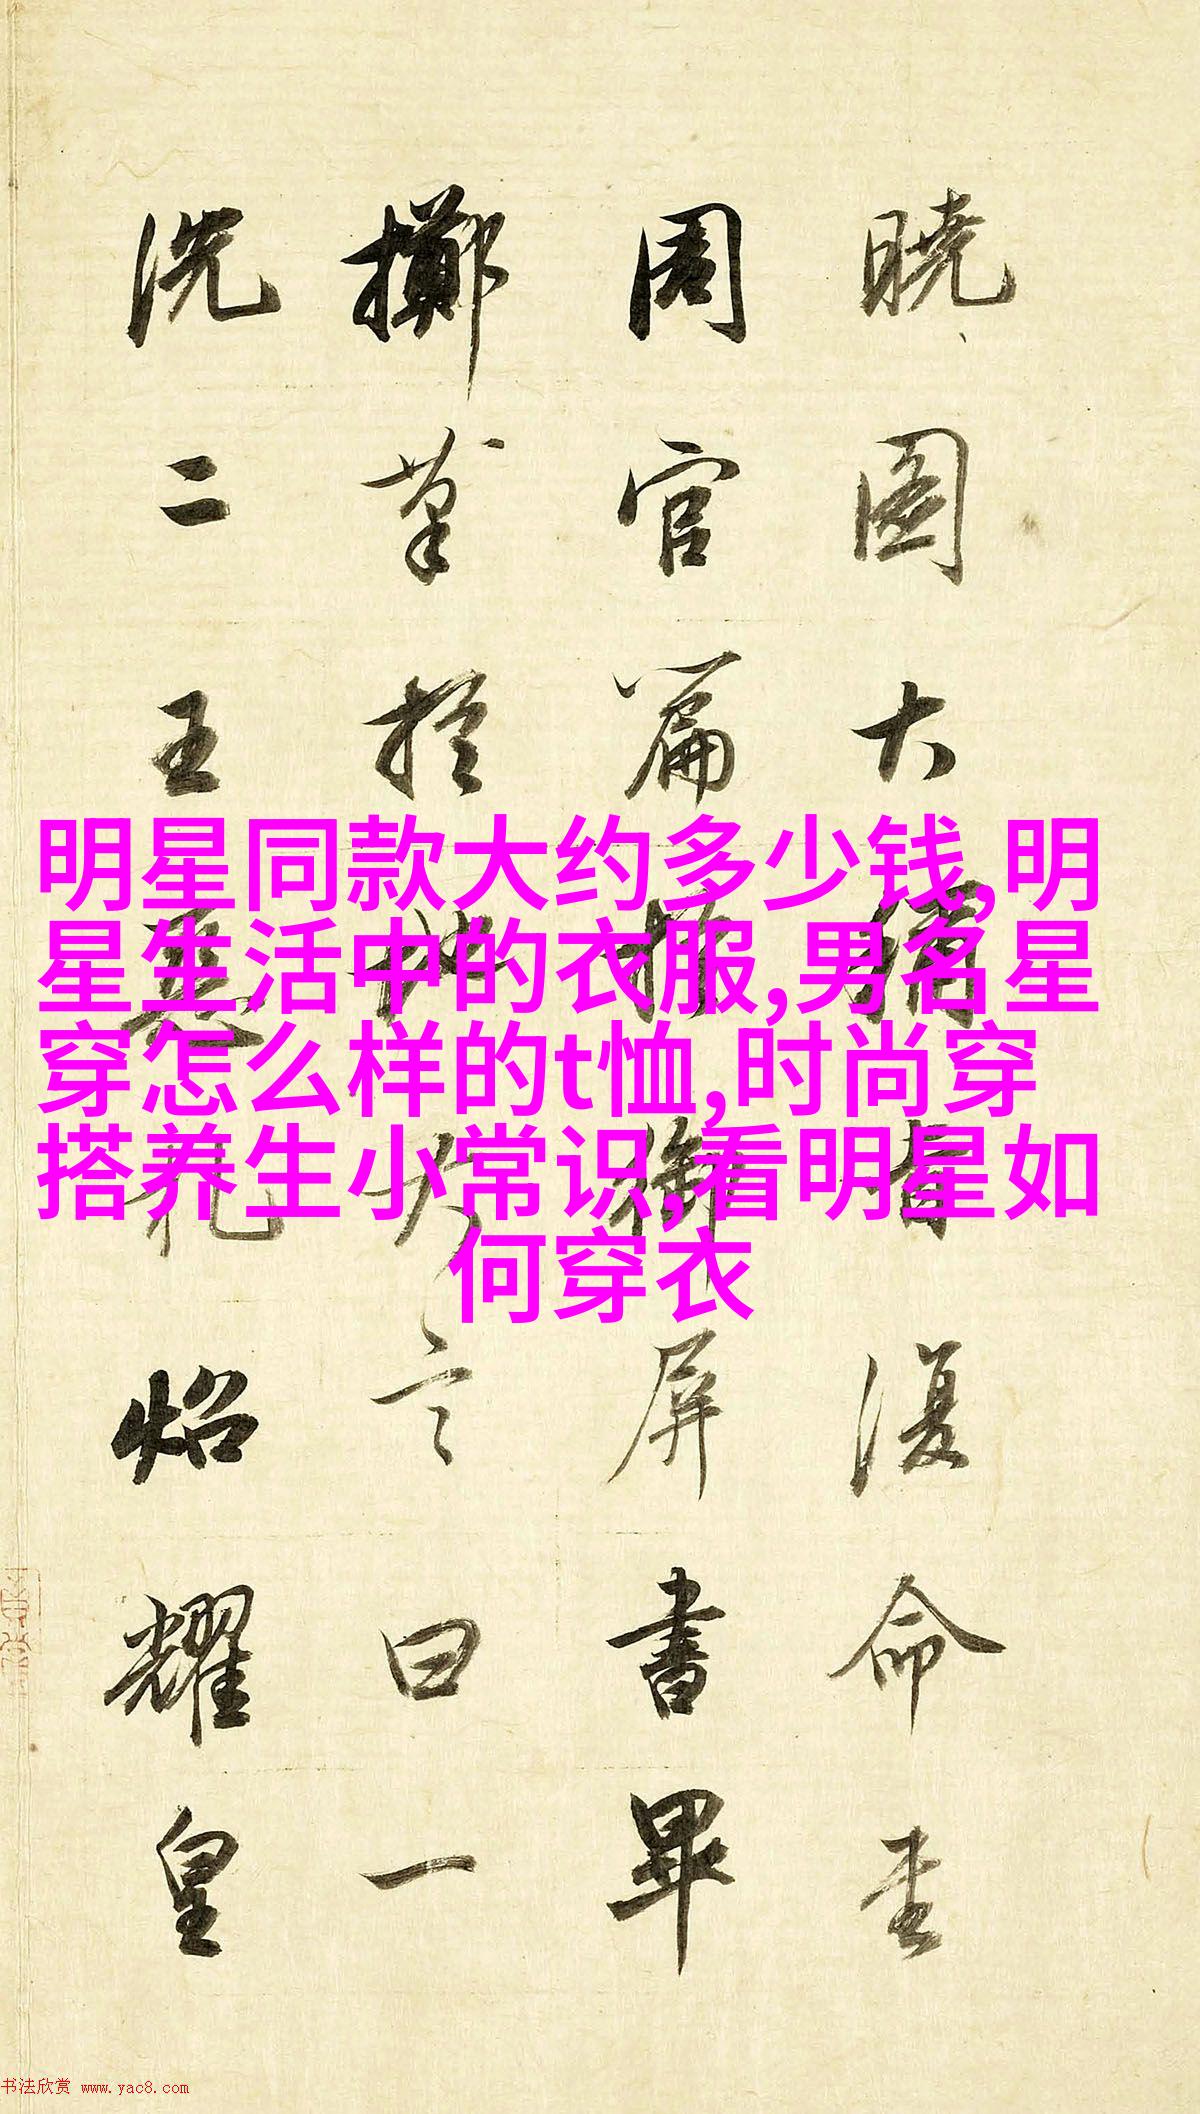 曉圖大有復命書
周官篇於御屏書畢
擲筆於地大言曰一
洗二王惡札炤耀皇
明星同款大约多少钱,明
星生活中的衣服,男名星
穿怎么样的t恤,时尚穿
搭养生小常识,看明星如
何穿衣
书法欣赏 www.yac8.com